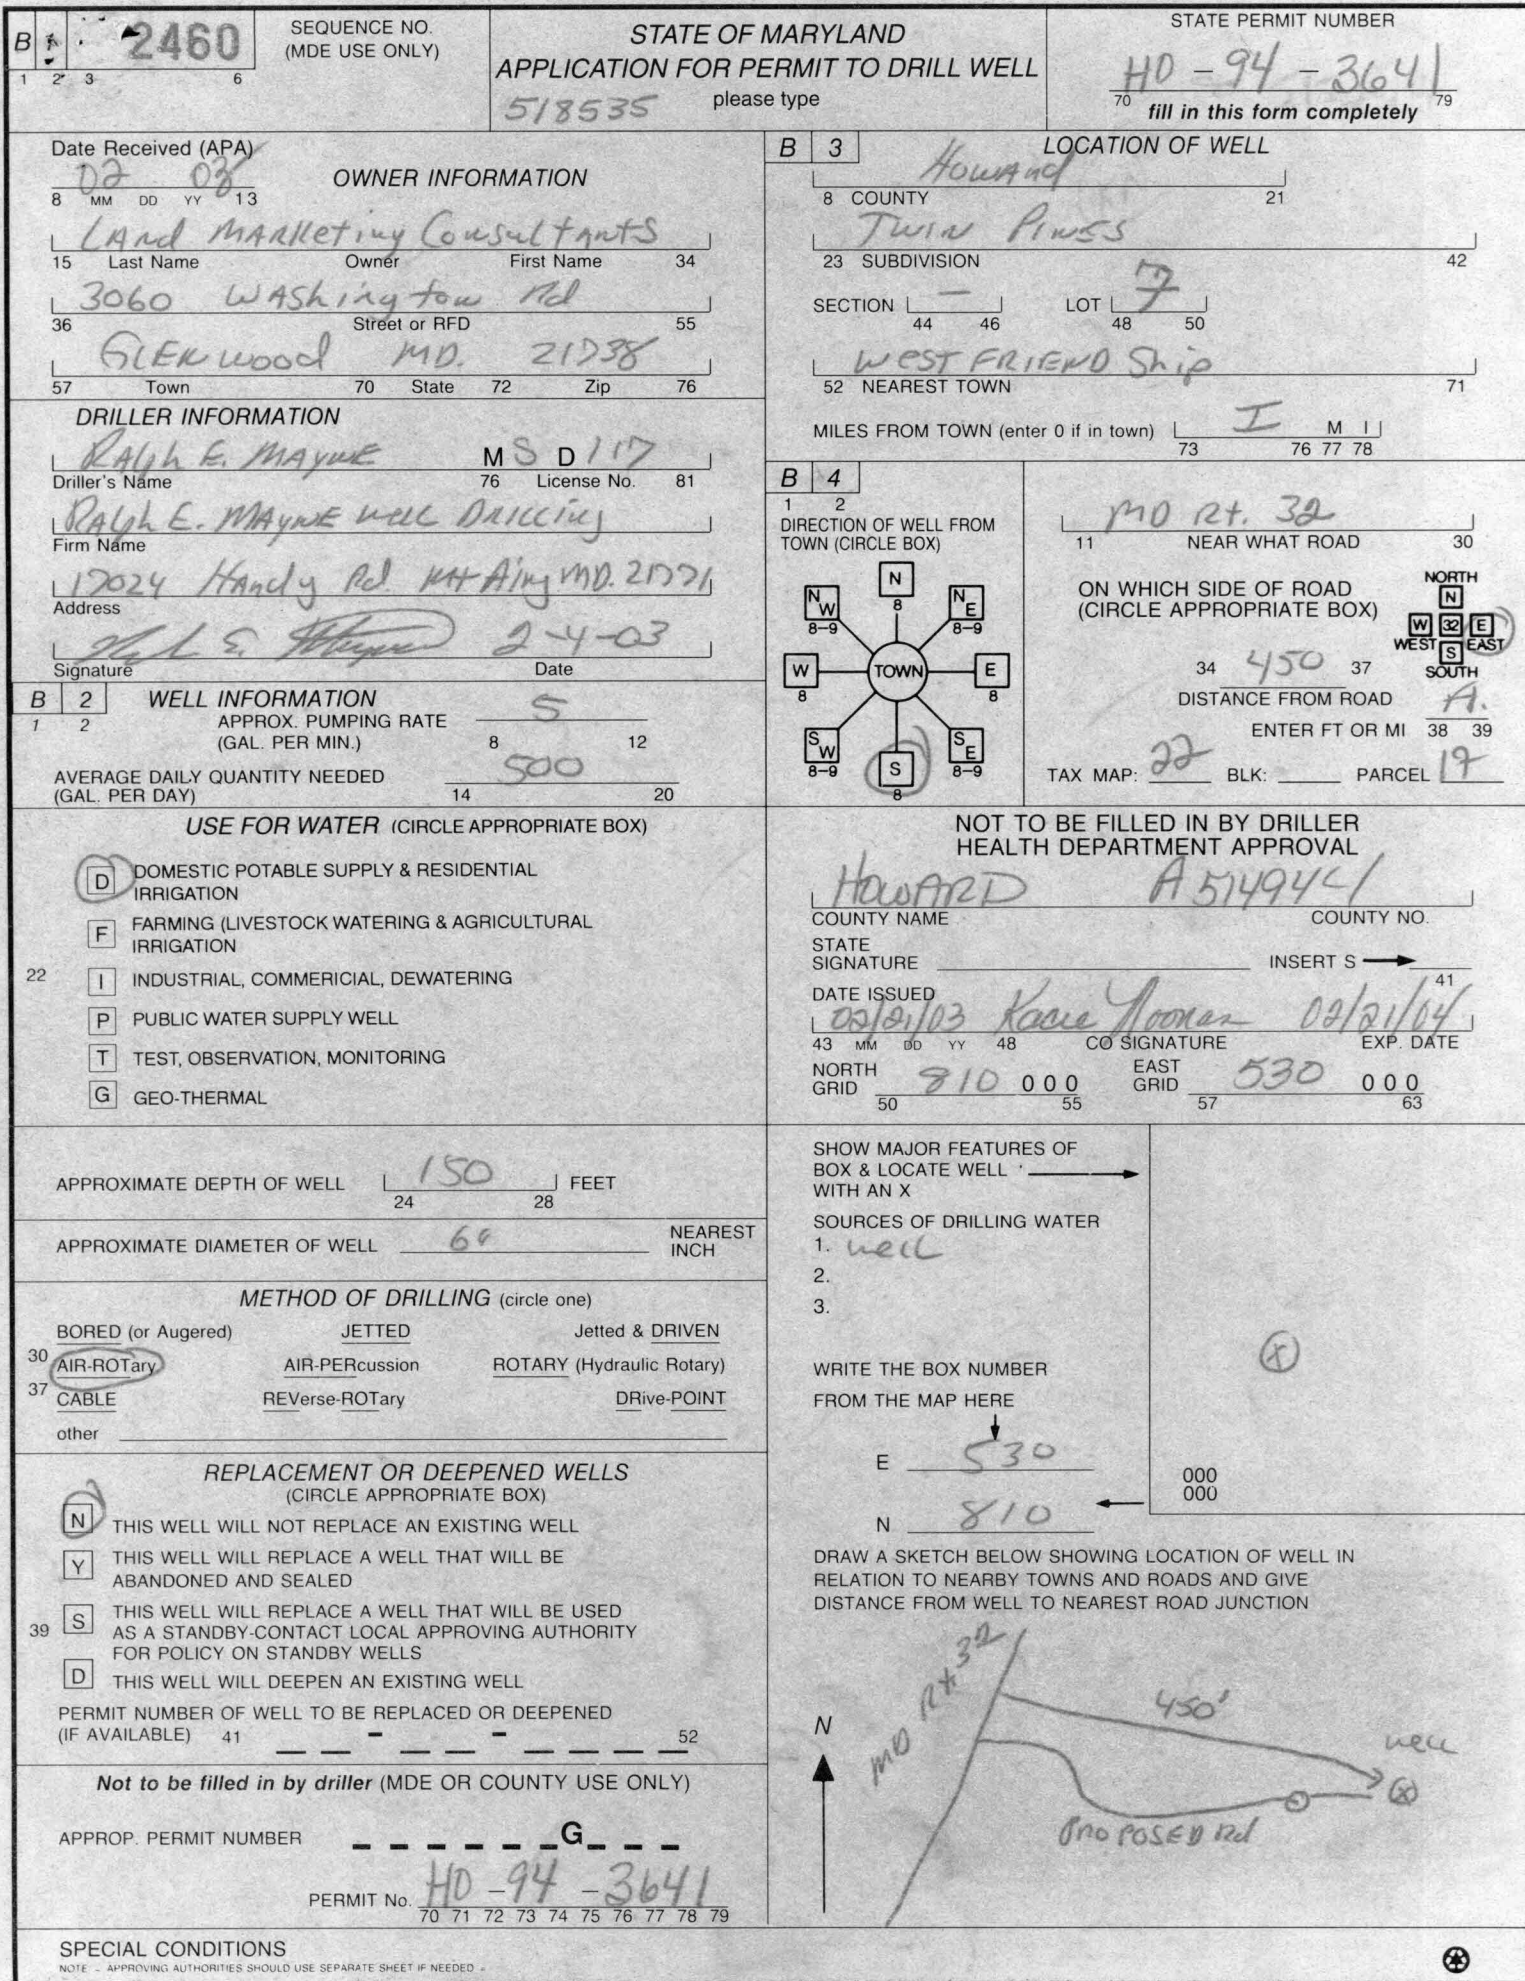 B 1 2460
1 2 3 6
SEQUENCE NO.
(MDE USE ONLY)
STATE OF MARYLAND
APPLICATION FOR PERMIT TO DRILL WELL
518535 please type
STATE PERMIT NUMBER
HO - 94 - 3641
70 79
fill in this form completely
Date Received (APA)
02 03
8 MM DD YY 13
OWNER INFORMATION
LAnd MARKeting ConsulTAntS
15 Last Name Owner First Name 34
3060 WAShington Rd
36 Street or RFD 55
GLENwood MD. 21738
57 Town 70 State 72 Zip 76
DRILLER INFORMATION
RALph E. MAYNE MSD 117
Driller's Name 76 License No. 81
RALph E. MAYNE WELL DRILLing
Firm Name
17024 HAndy Rd. Mt Airy MD. 21771
Address
2-4-03
Signature Date
B 2 WELL INFORMATION
1 2
APPROX. PUMPING RATE 5
(GAL. PER MIN.) 8 12
AVERAGE DAILY QUANTITY NEEDED 500
(GAL. PER DAY) 14 20
USE FOR WATER (CIRCLE APPROPRIATE BOX)
D DOMESTIC POTABLE SUPPLY & RESIDENTIAL
IRRIGATION
F FARMING (LIVESTOCK WATERING & AGRICULTURAL
IRRIGATION
22 I INDUSTRIAL, COMMERICIAL, DEWATERING
P PUBLIC WATER SUPPLY WELL
T TEST, OBSERVATION, MONITORING
G GEO-THERMAL
APPROXIMATE DEPTH OF WELL 150 FEET
24 28
APPROXIMATE DIAMETER OF WELL 6" NEAREST
INCH
METHOD OF DRILLING (circle one)
BORED (or Augered) JETTED Jetted & DRIVEN
30 AIR-ROTary AIR-PERcussion ROTARY (Hydraulic Rotary)
37 CABLE REVerse-ROTary DRive-POINT
other
REPLACEMENT OR DEEPENED WELLS
(CIRCLE APPROPRIATE BOX)
N THIS WELL WILL NOT REPLACE AN EXISTING WELL
Y THIS WELL WILL REPLACE A WELL THAT WILL BE
ABANDONED AND SEALED
39 S THIS WELL WILL REPLACE A WELL THAT WILL BE USED
AS A STANDBY-CONTACT LOCAL APPROVING AUTHORITY
FOR POLICY ON STANDBY WELLS
D THIS WELL WILL DEEPEN AN EXISTING WELL
PERMIT NUMBER OF WELL TO BE REPLACED OR DEEPENED
(IF AVAILABLE) 41 - - 52
Not to be filled in by driller (MDE OR COUNTY USE ONLY)
APPROP. PERMIT NUMBER G
PERMIT No. HO - 94 - 3641
70 71 72 73 74 75 76 77 78 79
SPECIAL CONDITIONS
NOTE - APPROVING AUTHORITIES SHOULD USE SEPARATE SHEET IF NEEDED -
B 3 LOCATION OF WELL
Howard
8 COUNTY 21
TWIN PINES
23 SUBDIVISION 42
SECTION — LOT 7
44 46 48 50
WEST FRIEND Ship
52 NEAREST TOWN 71
MILES FROM TOWN (enter 0 if in town) I M I
73 76 77 78
B 4
1 2
DIRECTION OF WELL FROM
TOWN (CIRCLE BOX)
N
8
NW
8-9
NE
8-9
W
8
TOWN
E
8
SW
8-9
S
8
SE
8-9
MD Rt. 32
11 NEAR WHAT ROAD 30
ON WHICH SIDE OF ROAD
(CIRCLE APPROPRIATE BOX)
NORTH
N
W 32 E
WEST EAST
S
SOUTH
34 450 37
DISTANCE FROM ROAD
ENTER FT OR MI 38 39
TAX MAP: 22 BLK: PARCEL 19
NOT TO BE FILLED IN BY DRILLER
HEALTH DEPARTMENT APPROVAL
HOWARD A 514944
COUNTY NAME COUNTY NO.
STATE
SIGNATURE INSERT S
41
DATE ISSUED
02/21/03 Kacie Noonan 02/21/04
43 MM DD YY 48 CO SIGNATURE EXP. DATE
NORTH
GRID 810 000
50 55
EAST
GRID 530 000
57 63
SHOW MAJOR FEATURES OF
BOX & LOCATE WELL
WITH AN X
SOURCES OF DRILLING WATER
1. well
2.
3.
X
WRITE THE BOX NUMBER
FROM THE MAP HERE
E 530
N 810
000
000
DRAW A SKETCH BELOW SHOWING LOCATION OF WELL IN
RELATION TO NEARBY TOWNS AND ROADS AND GIVE
DISTANCE FROM WELL TO NEAREST ROAD JUNCTION
MD Rt 32
450'
N
well
X
PROPOSED Rd